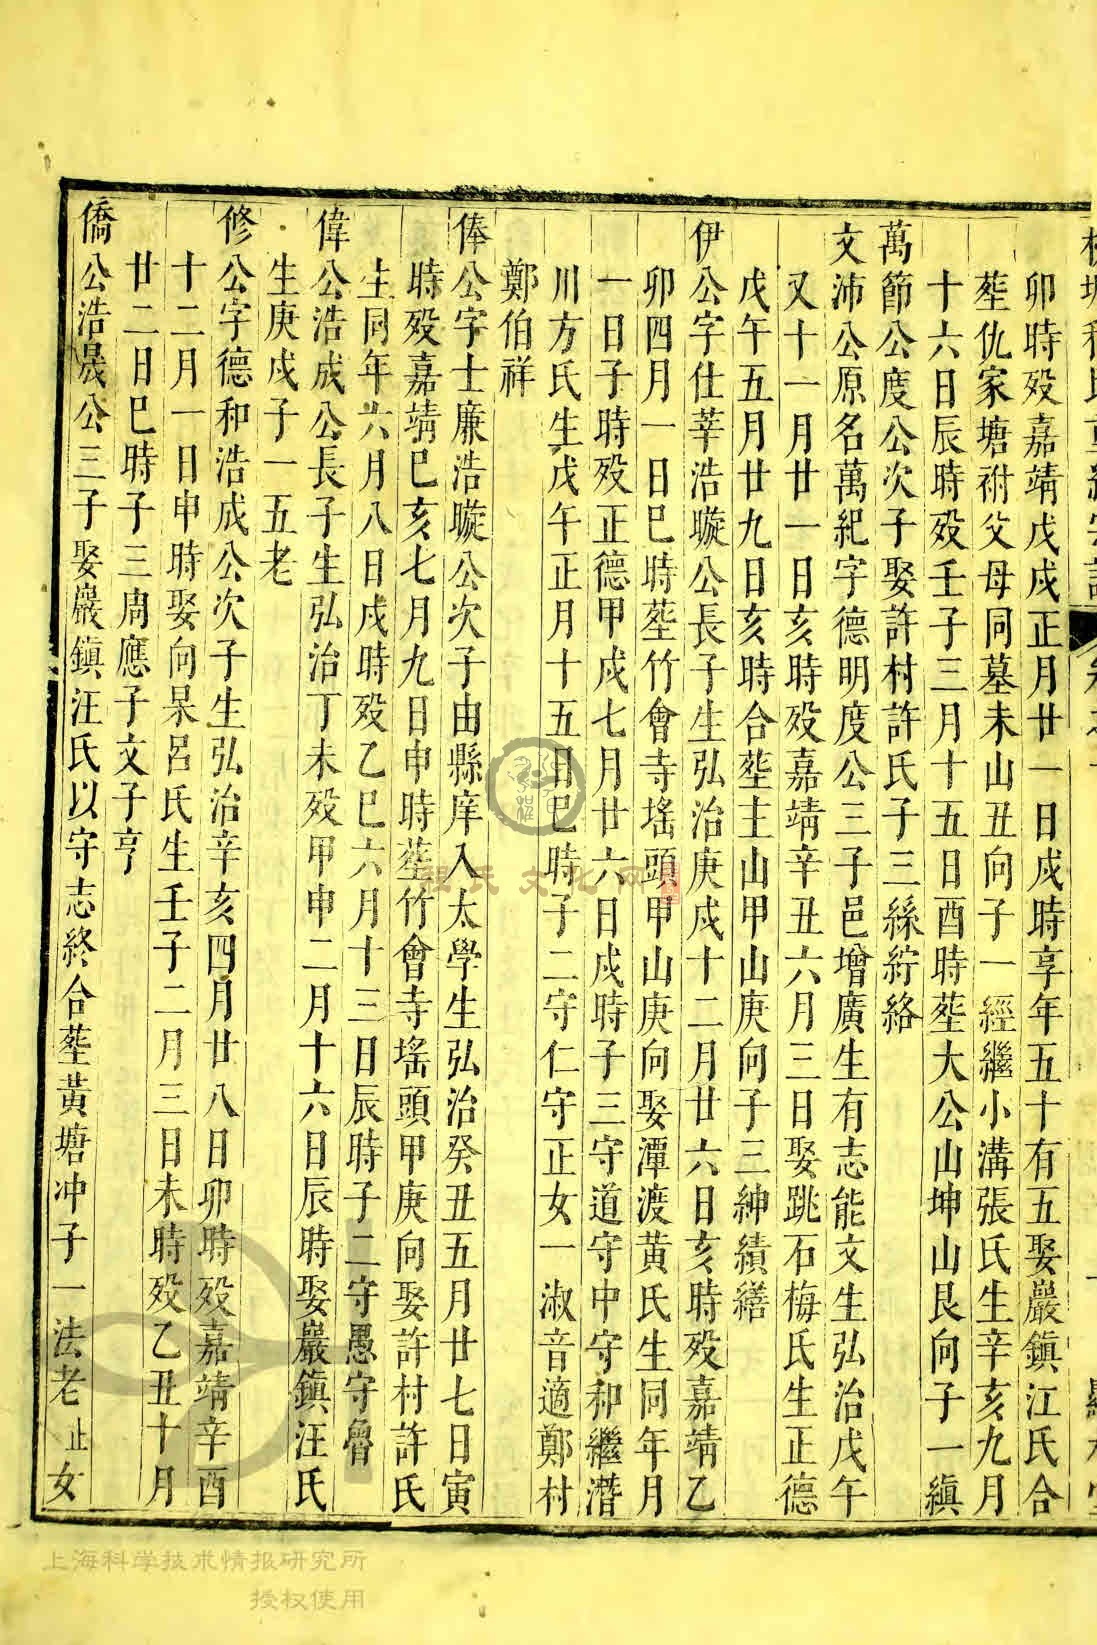 卯時歿嘉靖戊戌正月廿一日戌時享年五十有五娶巖鎮江氏合
塟仇家塘祔父母同墓未山丑向子一經繼小溝張氏生辛亥九月
十六日辰時歿壬子三月十五日酉時塟大公山坤山艮向子一縝
萬節公度公次子娶許村許氏子三絲紵絡
文沛公原名萬紀字德明度公三子邑增廣生有志能文生弘治戊午
又十一月廿一日亥時歿嘉靖辛丑六月三日娶跳石梅氏生正德
戊午五月廿九日亥時合塟主山甲山庚向子三紳績繕
伊公字仕莘浩暶公長子生弘治庚戌十二月廿六日亥時歿嘉靖乙
卯四月一日巳時塟竹會寺瑤頭甲山庚向娶潭渡黃氏生同年月
一日子時歿正德甲戌七月廿六日戌時子三守道守中守和繼潛
川方氏生戊午正月十五日巳時子二守仁守正女一淑音適鄭村
鄭伯祥
俸公字士廉浩暶公次子由縣庠入太學生弘治癸丑五月廿七日寅
時歿嘉靖巳亥七月九日申時塟竹會寺瑤頭甲庚向娶許村許氏
生同年六月八日戌時歿乙巳六月十三日辰時子二守愚守魯
偉公浩成公長子生弘治丁未歿甲申二月十六日辰時娶巖鎮汪氏
生庚戌子一五老
修公字德和浩成公次子生弘治辛亥四月廿八日卯時歿嘉靖辛酉
十二月一日申時娶向杲呂氏生壬子二月三日未時歿乙丑十月
廿二日巳時子三周應子文子亨
僑公浩晟公三子娶巖鎮汪氏以守志終合塟黃塘冲子一法老止女
上海科学技术情报研究所
授权使用